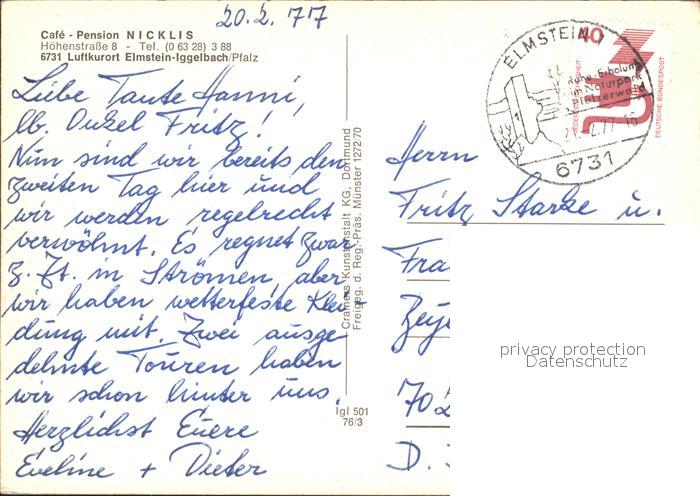 20.2.77
Café - Pension NICKLIS
Höhenstraße 8 - Tel. (0 63 28) 3 88
6731 Luftkurort Elmstein-Iggelbach/Pfalz
Liebe Tante Hanni,
lb. Onkel Fritz!
Nun sind wir bereits den
zweiten Tag hier und
wir werden regelrecht
verwöhnt. Es regnet zwar
z. Zt. in Strömen, aber
wir haben wetterfeste Klei-
dung mit. Zwei ausge
dehnte Touren haben
wir schon hinter uns.
Herzlichst Euere
Eveline + Dieter
Cramers Kunstanstalt KG, Dortmund
Freigeg. d. Reg.-Präs. Münster 1272/70
Igl 501
76/3
ELMSTEIN
Ruhe-Erholung
im Naturpark
Pfälzerwald
6731
40
DEUTSCHE BUNDESPOST
Herrn
Fritz Starke u.
Fra
Zey
70
D.
privacy protection
Datenschutz